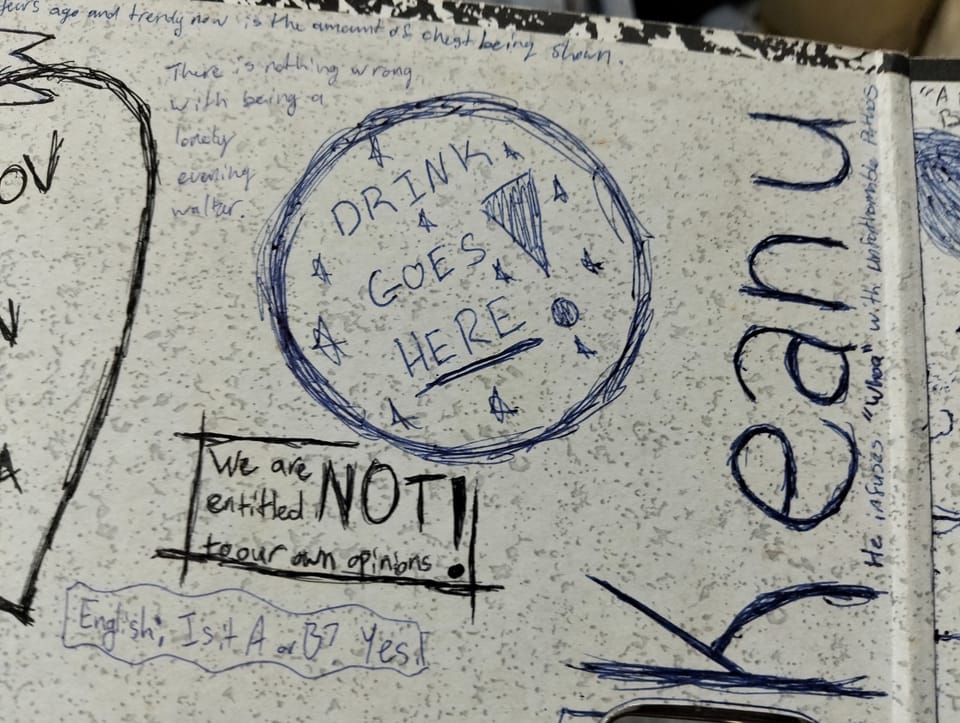 ears ago and trendy now is the amount of chest being shown.
There is nothing wrong
with being a
lonely
evening
walker.
DRINK
GOES
HERE
We are
entitled NOT!
to our own opinions
English; Is it A or B? Yes!
Keanu
He infuses "Whoa" with Unfathomable Pathos
OV
V
A
"A
B